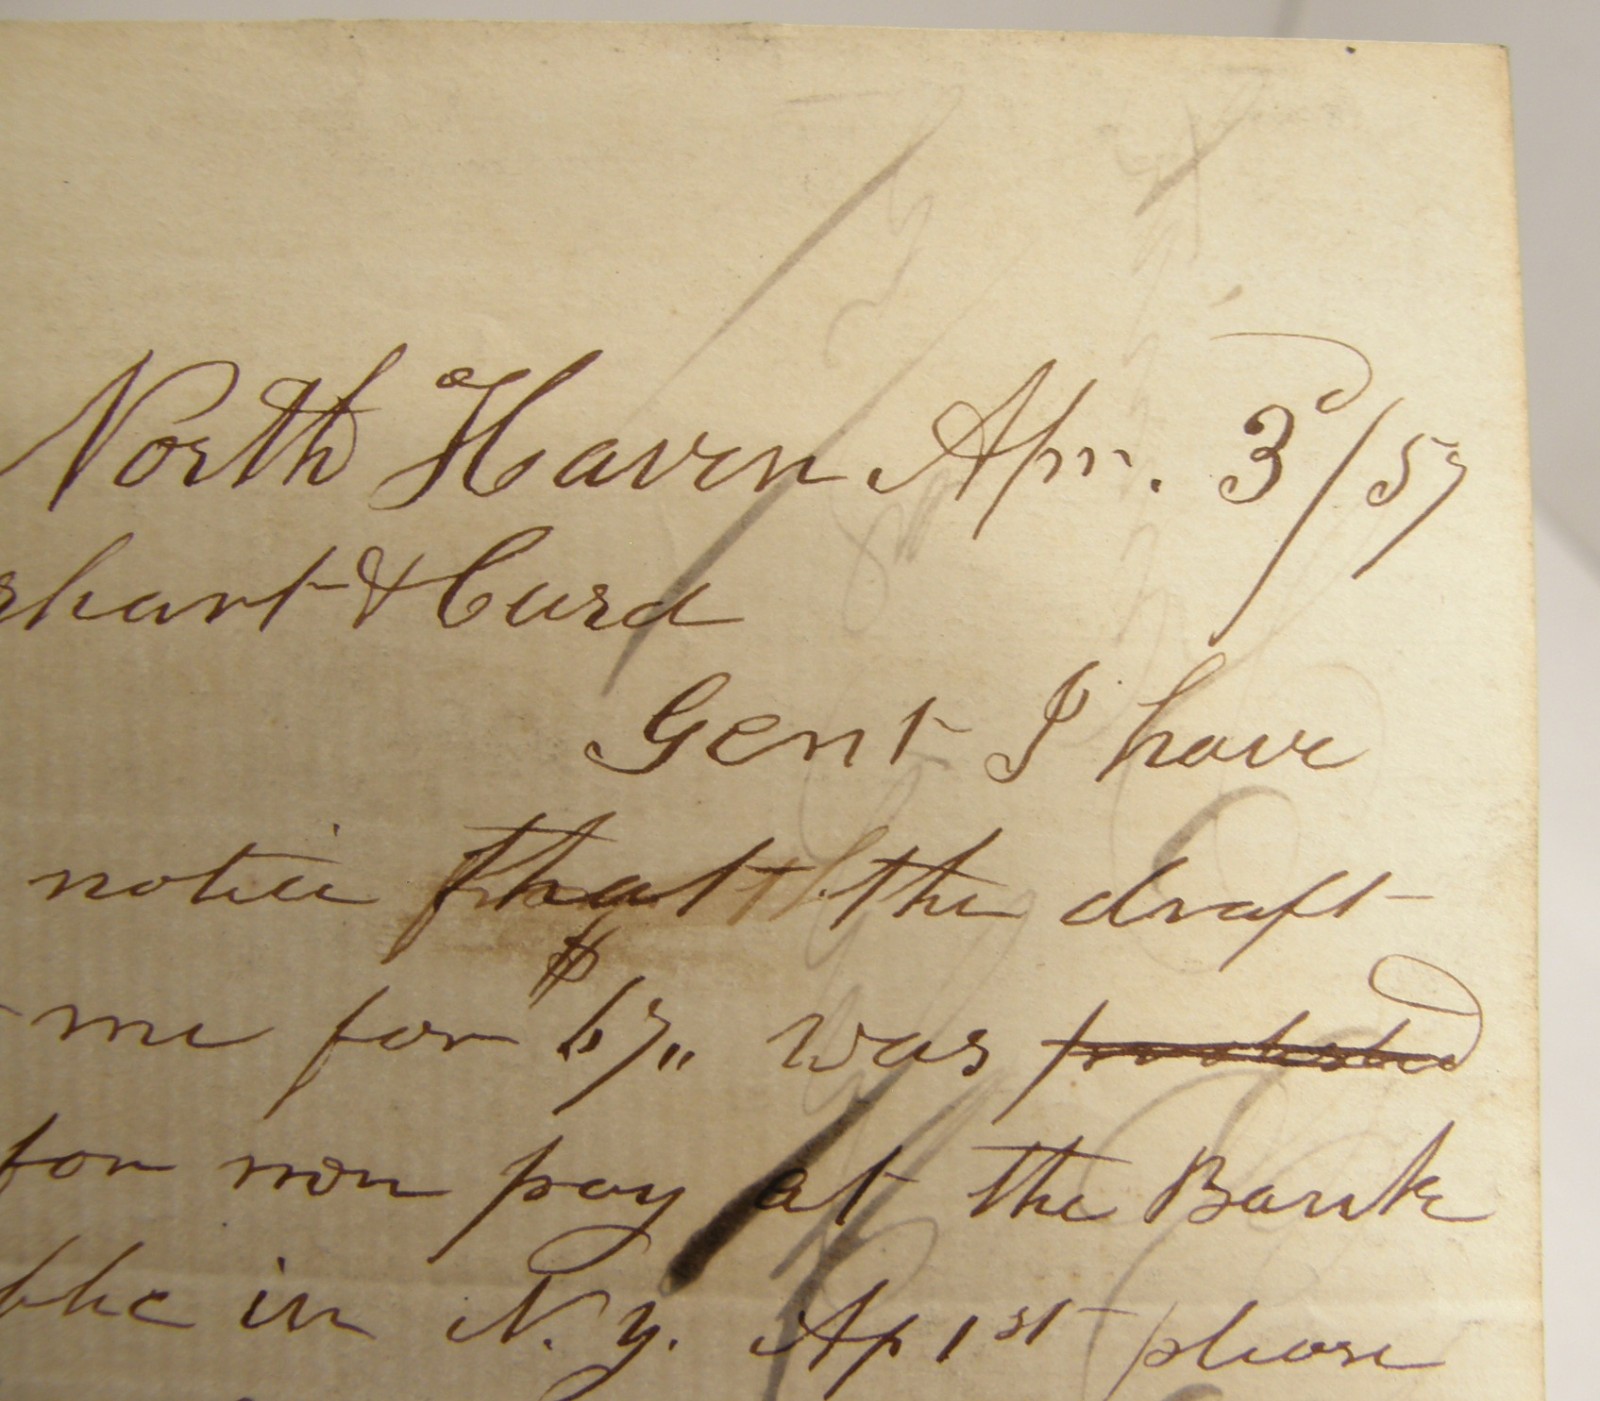 North Haven Apr. 3d/57
rhart & Curd
Gent I have
notice that the draft
me for $67,, was protested
for non pay at the Bank
in N.Y. Ap 1st please